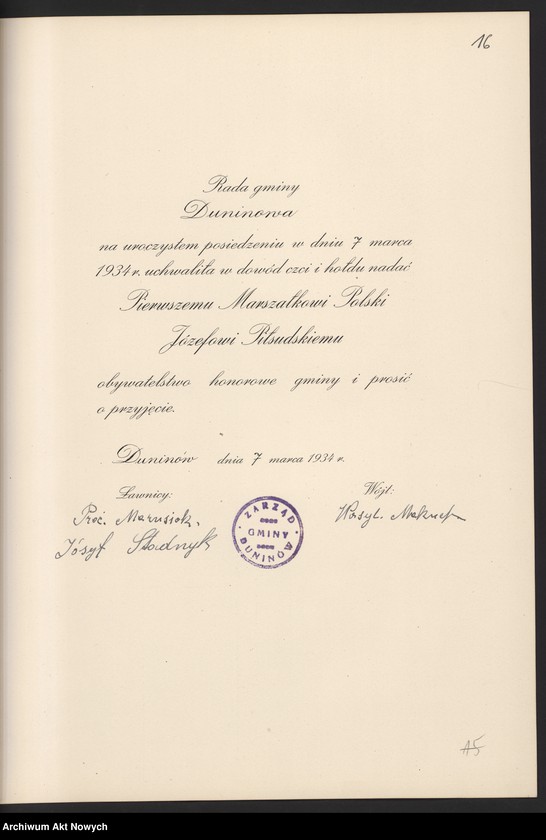 16
Rada gminy
Duninowa
na uroczystem posiedzeniu w dniu 7 marca
1934 r. uchwaliła w dowód czci i hołdu nadać
Pierwszemu Marszałkowi Polski
Józefowi Piłsudskiemu
obywatelstwo honorowe gminy i prosić
o przyjęcie.
Duninów dnia 7 marca 1934 r.
Ławnicy: Wójt:
Marusiak. Wasyl.
Jósyf
ZARZĄD
GMINY
DUNINÓW
15
Archiwum Akt Nowych